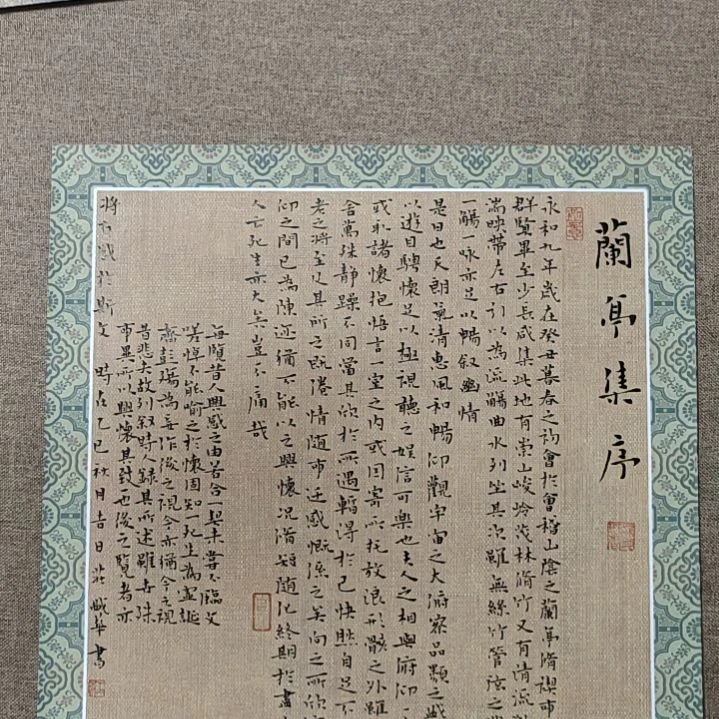 蘭亭集序
永和九年歲在癸丑暮春之初會於會稽山陰之蘭亭脩禊事
群賢畢至少長咸集此地有崇山峻嶺茂林脩竹又有清流激
湍映帶左右引以為流觴曲水列坐其次雖無絲竹管弦之盛
一觴一咏亦足以暢敘幽情
是日也天朗氣清惠風和暢仰觀宇宙之大俯察品類之盛
以遊目騁懷足以極視聽之娛信可樂也夫人之相與俯仰一
或取諸懷抱悟言一室之內或因寄所托放浪形骸之外雖
舍萬殊靜躁不同當其欣於所遇輒得於己快然自足不
老之將至及其所之既倦情隨事遷感慨係之矣向之所欣
仰之間已為陳迹猶不能以之興懷況脩短隨化終期於盡
人云死生亦大矣豈不痛哉
每覽昔人興感之由若合一契未嘗不臨文
嗟悼不能喻之於懷固知一死生為虛誕
齊彭殤為妄作後之視今亦猶今之視
昔悲夫故列敘時人錄其所述雖世殊
事異所以興懷其致一也後之覽者亦
將有感於斯文 時在乙巳秋月吉日 華書